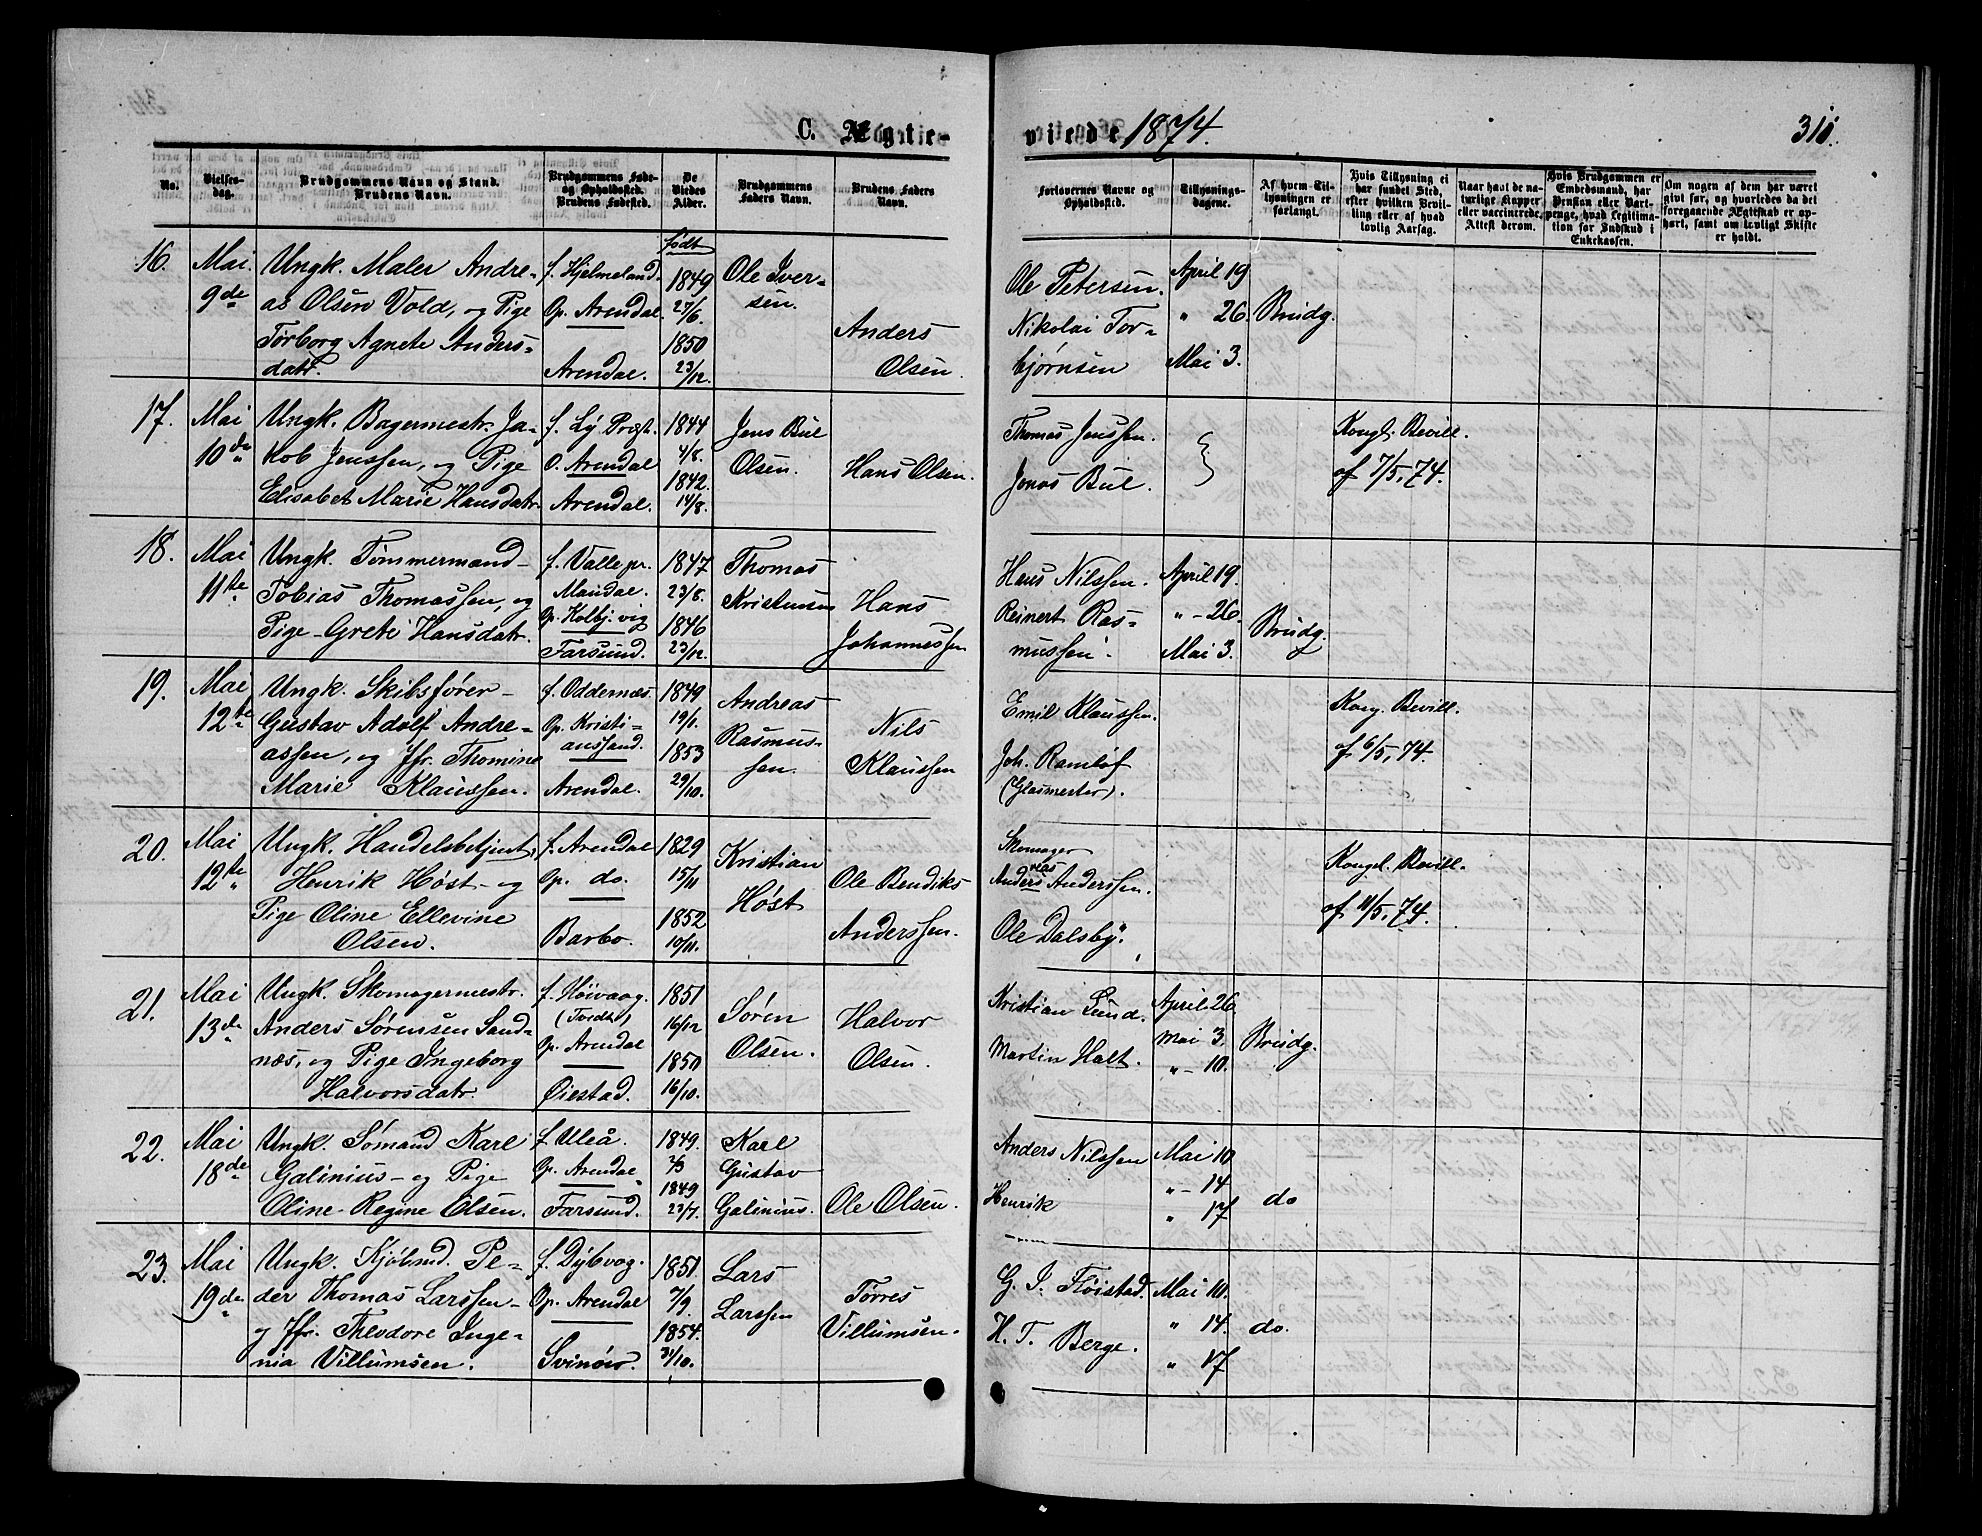 C. Ægte-
viede 1874.
No.
Vielses-dag.
Brudgommens Navn og Stand. Brudens Navn.
Brudgommens Føde- og Opholdssted. Brudens Fødested.
De Viedes Alder.
Brudgommens Faders Navn.
Brudens Faders Navn.
Forlovernes Navne og Opholdssted.
Tillysnings-dagene.
Af hvem Tillysningen er forlangt.
Hvis Tillysning ei har fundet Sted, efter hvilken Bevilling eller af hvad lovlig Aarsag.
Naar havt de naturlige Kopper eller vaccinerede, Attest derom.
Hvis Brudgommen er Embedsmand, har Pension eller Vartpenge, hvad Legitimation for Indskud i Enkekassen.
Om nogen af dem har været givt før, og hvorledes da det foregaaende Ægteskab er ophørt, samt om lovligt Skifte er holdt.
Født
16.
Mai
9de
Ungk. Maler Andre-
as Olsen Vold, og Pige
Torborg Agnete Anders-
datr.
f. Hjelmeland.
Op. Arendal.
Arendal.
1849
27/6.
1850
23/12.
Ole Iver-
sen.
Anders
Olsen.
Ole Petersen.
Nikolai Tor-
bjørnsen
April 19
" 26.
Mai 3.
Brudg.
17.
Mai
10de
Ungk. Bagermestr. Ja-
kob Jenssen, og Pige
Elisabet Marie Hansdatr.
f. Ly Præst.
O. Arendal
Arendal.
1844
4/8.
1842.
14/8.
Jens Bul
Olsen.
Hans Olsen.
Thomas Jenssen.
Jonas Bul.
Kongl. Bevill.
af 7/5, 74.
18.
Mai
11te
Ungk. Tømmermand
Tobias Thomassen, og
Pige Grete Hansdatr.
f. Valle pr.
Mandal.
Op. Kolbj.vig
Farsund.
1847
23/8.
1846
23/12.
Thomas
Kristensen
Hans
Johannessen
Hans Nilssen.
Reinert Ras-
mussen.
April 19.
" - 26.
Mai 3.
Brudg.
19.
Mai
12te
Ungk. Skibsfører
Gustav Adolf Andre-
assen, og Jfr. Thomine
Marie Klaussen.
f. Oddernæs
Op. Kristi-
anssand.
Arendal.
1849
19/1.
1853
29/10.
Andreas
Rasmus-
sen.
Nils
Klaussen
Emil Klaussen.
Joh. Ramløf
(Glasmester).
Kong. Bevill.
af 6/5, 74.
20.
Mai
12te
Ungk. Handelsbetjent
Henrik Høst og
Pige Oline Ellevine
Olsen.
f. Arendal
Op. do.
Barbo.
1829
15/11
1852
10/11.
Kristian
Høst
Ole Bendiks
Anderssen.
Skomager
Andreas Anderssen.
Ole Dalsby.
Kongel. Bevill.
af 11/5, 74.
21.
Mai
13de
Ungk. Skomagermestr.
Anders Sørensen Sand-
næs, og Pige Ingeborg
Halvorsdatr.
f. Høivaag.
(Tvedt)
Op. Arendal
Øiestad.
1851
16/12
1850
16/10.
Søren
Olsen.
Halvor
Olsen.
Kristian Lund.
Martin Holt.
April 26
Mai 3.
" - 10.
Brudg.
22.
Mai
18de
Ungk. Sømand Karl
Galinius - og Pige
Oline Regine Olsen.
f. Uleå.
Op. Arendal
Farsund.
1849.
1849
23/7.
Karl
Gustav
Galinius.
Ole Olsen.
Anders Nilssen
Henrik
Mai 10
" - 14
" 17
do
23.
Mai
19de
Ungk. Kjøbmd. Pe-
der Thomas Larssen
og Jfr. Theodore Inge-
nia Villumsen.
f. Dybvag.
Op. Arendal
Svinør.
1851
7/9.
1854.
31/10.
Lars
Larssen
Tørres
Villumsen.
G. I. Fløistad.
H. T. Berge.
Mai 10.
" 14.
" 17
do.